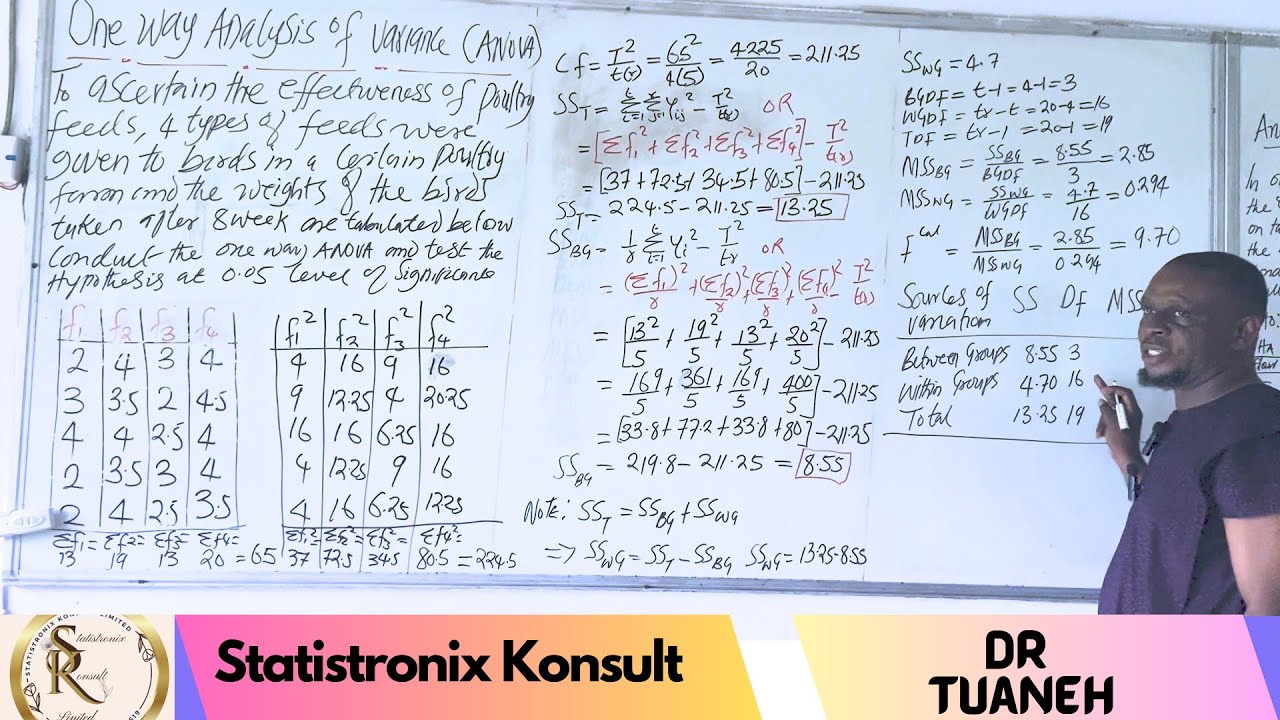 One way Analysis of variance (ANOVA)
To ascertain the effectiveness of poultry
feeds, 4 types of feeds were
given to birds in a certain poultry
farm and the weights of the birds
taken after 8 week are tabulated below
Conduct the one way ANOVA and test the
Hypothesis at 0.05 level of significance
f₁ f₂ f₃ f₄
2 4 3 4
3 3.5 2 4.5
4 4 2.5 4
2 3.5 3 4
2 4 2.5 3.5
Σf₁= Σf₂= Σf₃= Σf₄=
13 19 13 20 = 65
f₁² f₂² f₃² f₄²
4 16 9 16
9 12.25 4 20.25
16 16 6.25 16
4 12.25 9 16
4 16 6.25 12.25
Σf₁²= Σf₂²= Σf₃²= Σf₄²=
37 72.5 34.5 80.5 = 224.5
Cf = T²/t(r) = 65²/4(5) = 4225/20 = 211.25
SS_T = Σ Σ Y_ij² - T²/t(r) OR
= [Σf₁² + Σf₂² + Σf₃² + Σf₄²] - T²/t(r)
= [37 + 72.5 + 34.5 + 80.5] - 211.25
SS_T = 224.5 - 211.25 = 13.25
SS_BG = 1/r Σ Y_i² - T²/tr OR
= (Σf₁)²/r + (Σf₂)²/r + (Σf₃)²/r + (Σf₄)²/r - T²/t(r)
= [13²/5 + 19²/5 + 13²/5 + 20²/5] - 211.25
= [169/5 + 361/5 + 169/5 + 400/5] - 211.25
= [33.8 + 77.2 + 33.8 + 80] - 211.25
SS_BG = 219.8 - 211.25 = 8.55
Note: SS_T = SS_BG + SS_WG
=> SS_WG = SS_T - SS_BG SS_WG = 13.25-8.55
SS_WG = 4.7
BGDF = t-1 = 4-1 = 3
WGDF = tr-t = 20-4 = 16
TDF = tr-1 = 20-1 = 19
MSS_BG = SS_BG/BGDF = 8.55/3 = 2.85
MSS_WG = SS_WG/WGDF = 4.7/16 = 0.294
F^cal = MSS_BG/MSS_WG = 2.85/0.294 = 9.70
Sources of variation SS Df MSS
Between Groups 8.55 3
Within Groups 4.70 16
Total 13.25 19
An
In o
the
on ta
the
HA
STATISTRONIX KONSULT LIMITED
Statistronix
Konsult
Limited
Statistronix Konsult
DR
TUANEH